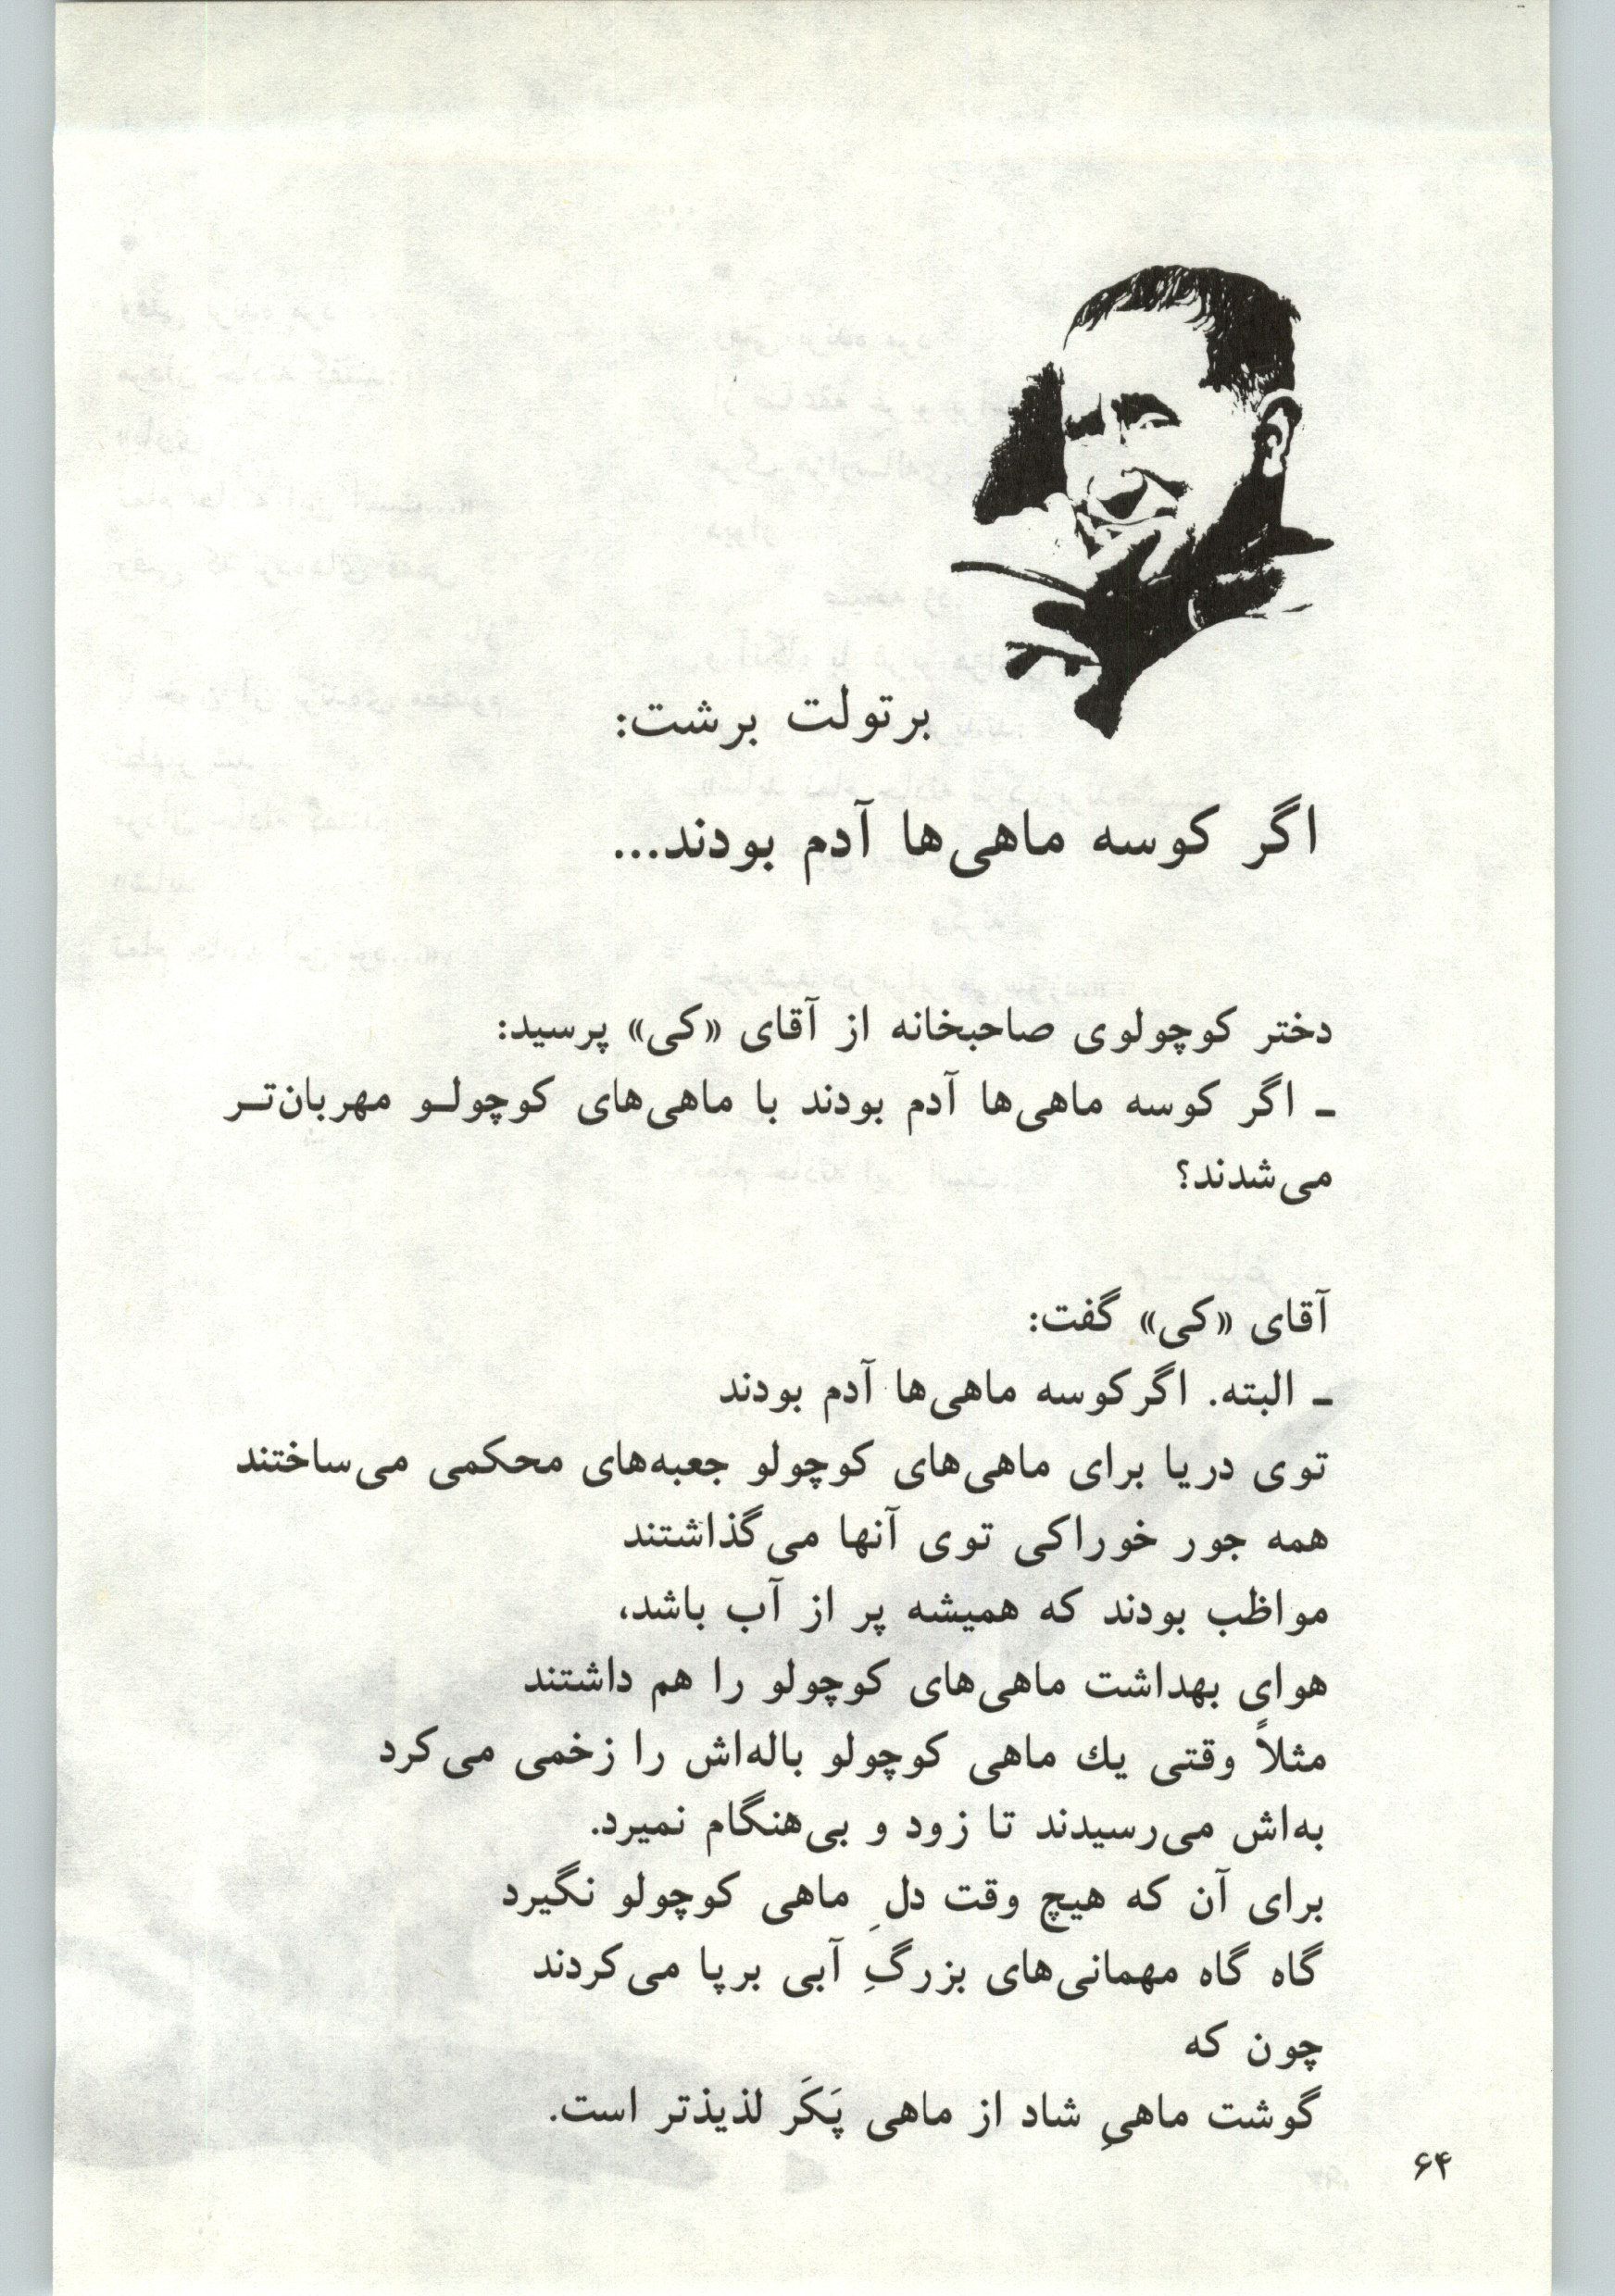 برتولت برشت:
اگر کوسه ماهی‌ها آدم بودند...
دختر کوچولوی صاحبخانه از آقای «کی» پرسید:
ـ اگر کوسه ماهی‌ها آدم بودند با ماهی‌های کوچولـو مهربان‌تـر
می‌شدند؟
آقای «کی» گفت:
ـ البته. اگر کوسه ماهی‌ها آدم بودند
توی دریا برای ماهی‌های کوچولو جعبه‌های محکمی می‌ساختند
همه جور خوراکی توی آنها می‌گذاشتند
مواظب بودند که همیشه پر از آب باشد،
هوای بهداشت ماهی‌های کوچولو را هم داشتند
مثلاً وقتی یك ماهی کوچولو باله‌اش را زخمی می‌کرد
به‌اش می‌رسیدند تا زود و بی‌هنگام نمیرد.
برای آن که هیچ وقت دلِ ماهی کوچولو نگیرد
گاه گاه مهمانی‌های بزرگِ آبی برپا می‌کردند
چون که
گوشت ماهیِ شاد از ماهی پَکَر لذیذتر است.
۶۴